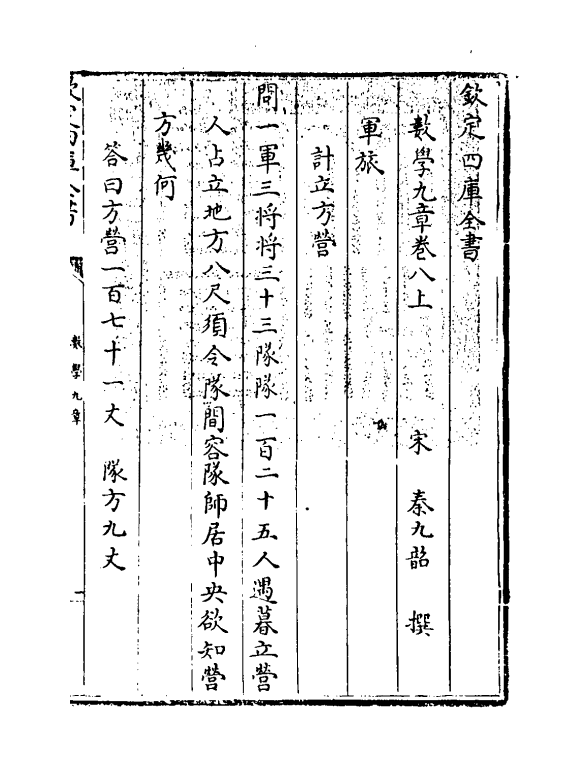 欽定四庫全書
數學九章卷八上　　　宋　秦九韶　撰
軍旅
計立方營
問一軍三將將三十三隊隊一百二十五人遇暮立營
人占立地方八尺須令隊間容隊師居中央欲知營
方幾何
答曰方營一百七十一丈　隊方九丈
數學九章
一